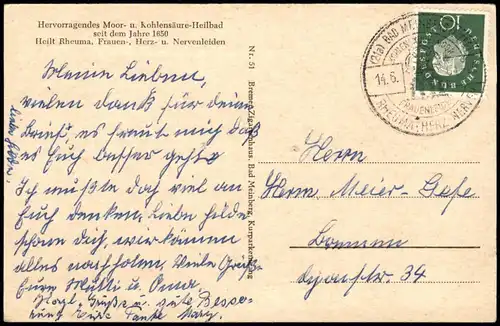 Hervorragendes Moor- u. Kohlensäure-Heilbad
seit dem Jahre 1650
Heilt Rheuma, Frauen-, Herz- u. Nervenleiden
Meine Lieben,
vielen Dank für dein
Brief, es freut mich daß
es Euch besser geht
Ich mußte doch viel an
Euch denken, Liebe Hilde
schon dich, wir können
alles nachholen, Viele Grüße
Eure Mutti u. Oma.
Herzl. Grüße u. gute Besse-
rung Eure Tante Mary.
Nr. 51
Bad Meinberg, Kurparkeingang
(21a) BAD MEINBERG
14.6.
FRAUENLEIDEN
RHEUMA-HERZ-NERVEN
DEUTSCHE
BUNDESPOST
10
Herrn
Herrn, Meier-Gefe
Bremen
34